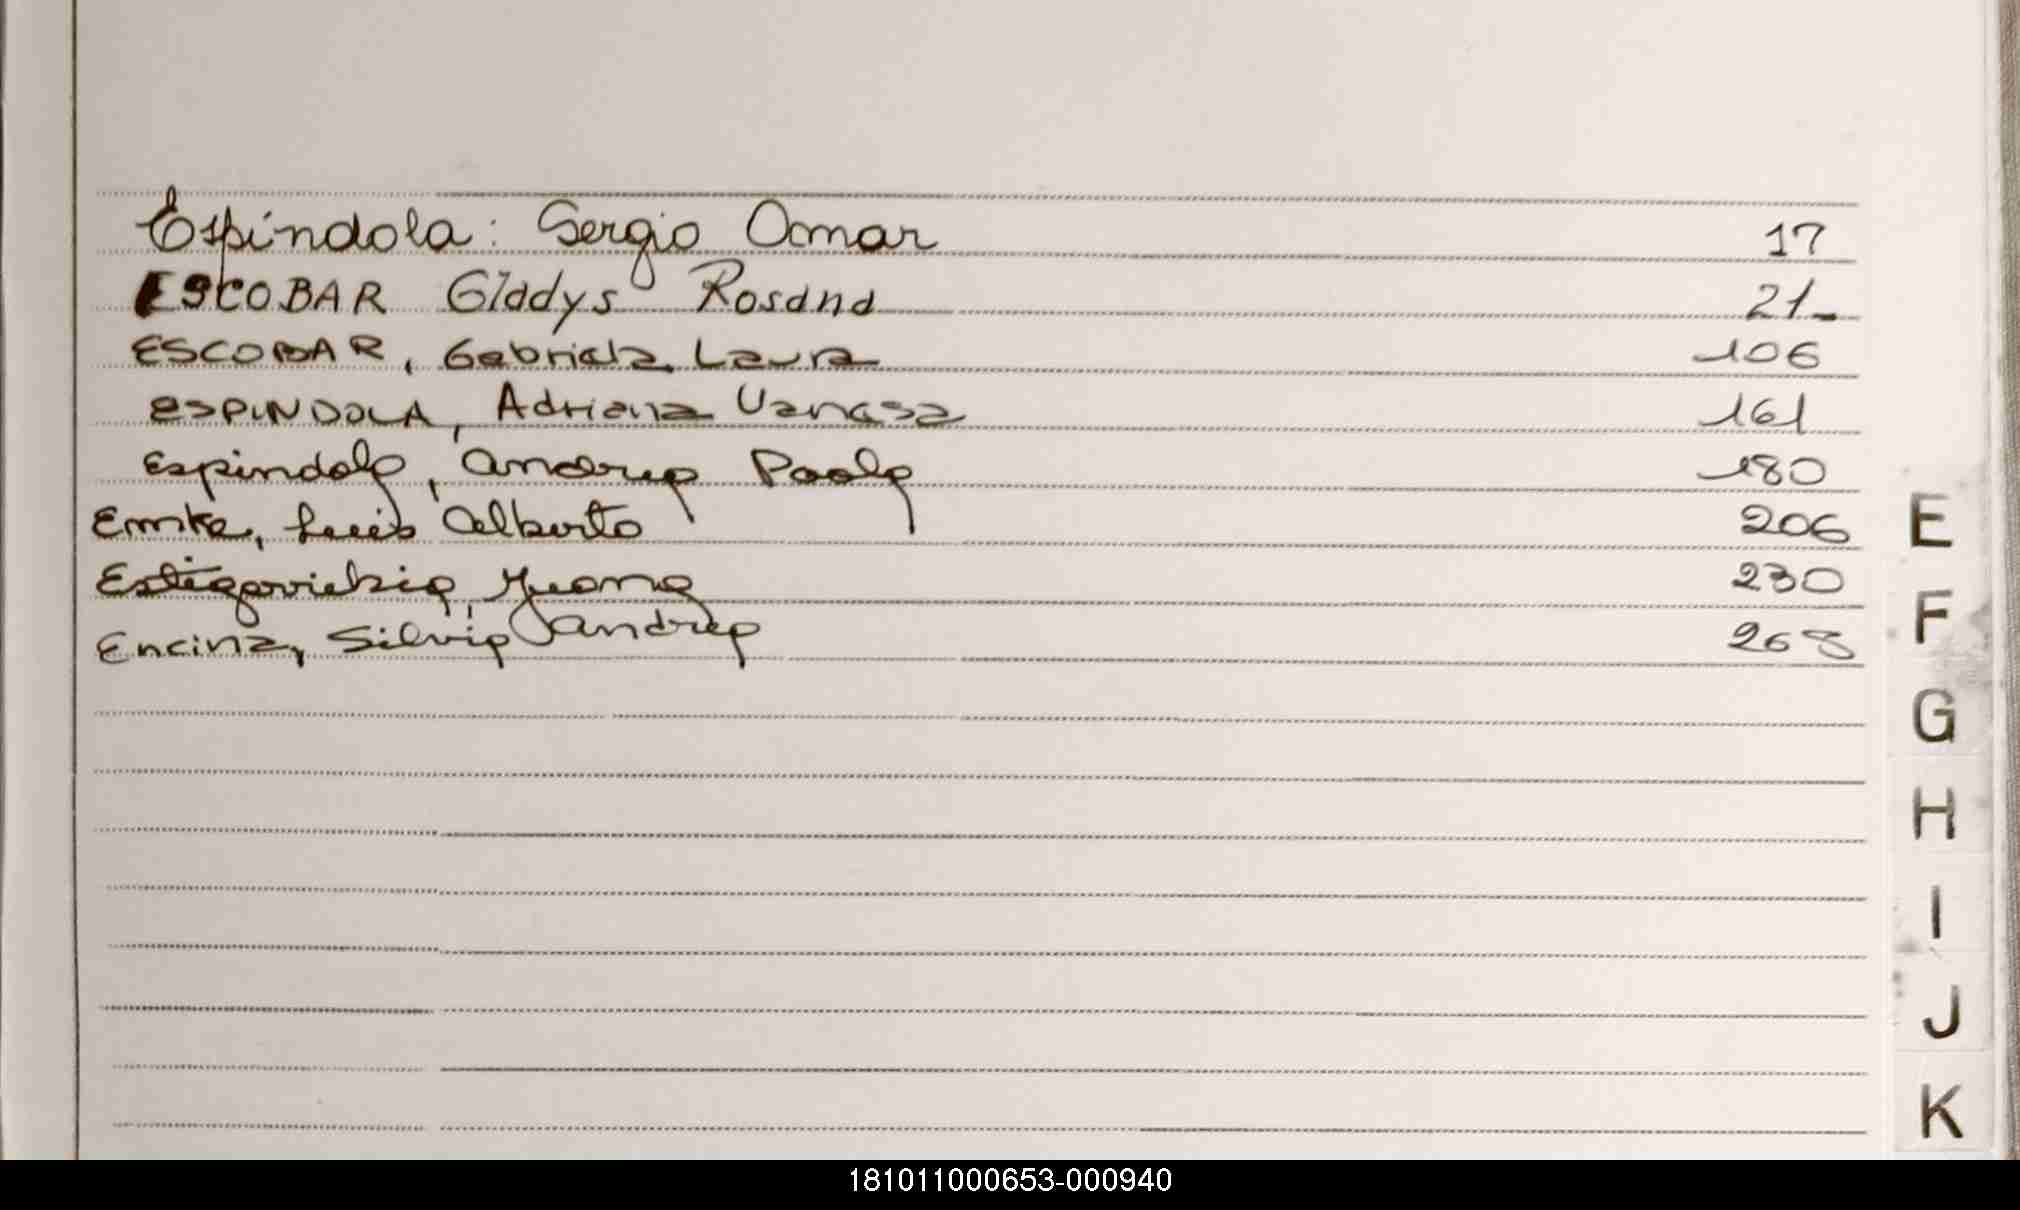 Espíndola: Sergio Omar 17
ESCOBAR Gladys Rosana 21-
ESCOBAR, Gabriela Laura 106
ESPINDOLA, Adriana Vanesa 161
Espindola, Andrea Paola 180
Luis Alberto 206
Estigarribia, Juana 230
Encina, Silvia Andrea 268
E
F
G
H
I
J
K
181011000653-000940